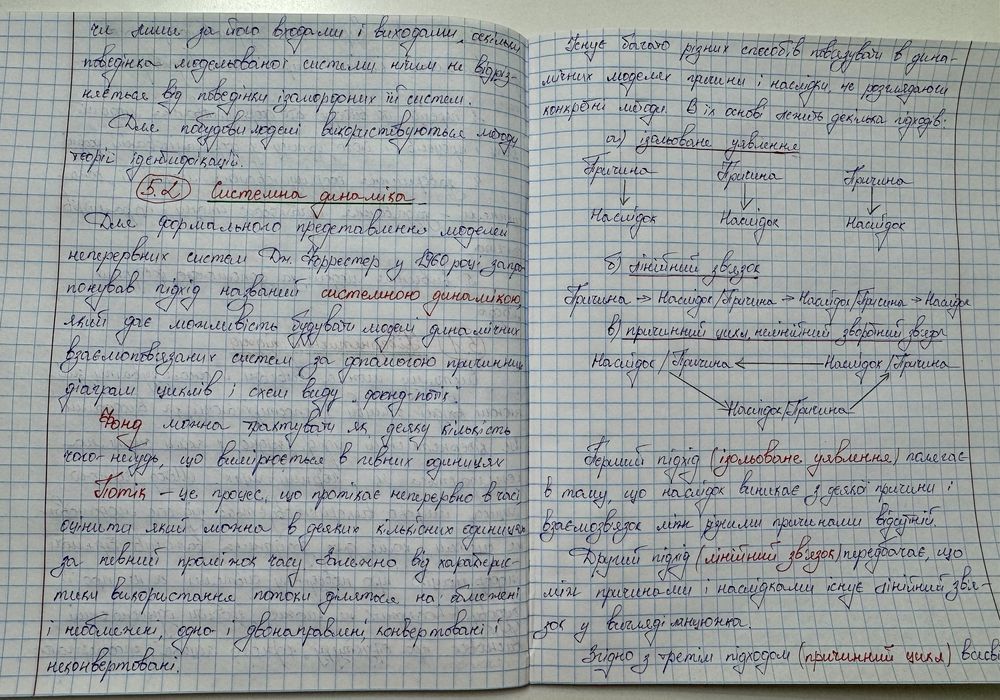 чи лише за його входами і виходами, оскільки
поведінка модельованої системи нічим не відріз-
няється від поведінки ізоморфних їй систем.
Для побудови моделі використовуються методи
теорій ідентифікацій.
5.2 Системна динаміка
Для формального представлення моделей
неперервних систем Дж. Форрестер у 1960 році запро-
понував підхід названий системною динамікою,
який дає можливість будувати моделі динамічних
взаємопов'язаних систем за допомогою причинних
діаграм циклів і схем виду "фонд-потік".
Фонд можна трактувати як деяку кількість
чого-небудь, що вимірюється в певних одиницях
Потік - це процес, що протікає неперервно в часі
оцінити який можна в деяких кількісних одиницях
за певний проміжок часу. Залежно від характерис-
тики використання потоки діляться на: обмежені
і необмежені, одно- і двонаправлені, конвертовані і
неконвертовані.
Існує багато різних способів пов'язувати в дина-
мічних моделях причини і наслідки, не розглядаючи
конкретні методи. В їх основі лежить декілька підходів:
а) ізольоване уявлення
Причина Причина Причина
Наслідок Наслідок Наслідок
б) лінійний зв'язок
Причина → Наслідок/Причина → Наслідок/Причина → Наслідок
в) причинний цикл, нелінійний зворотній зв'язок
Наслідок/Причина Наслідок/Причина
Наслідок/Причина
Перший підхід (ізольоване уявлення) полягає
в тому, що наслідок виникає з деякої причини і
взаємозв'язок між різними причинами відсутній.
Другий підхід (лінійний зв'язок) передбачає, що
між причинами і наслідками існує лінійний зв'я-
зок у вигляді ланцюжка.
Згідно з третім підходом (причинний цикл)